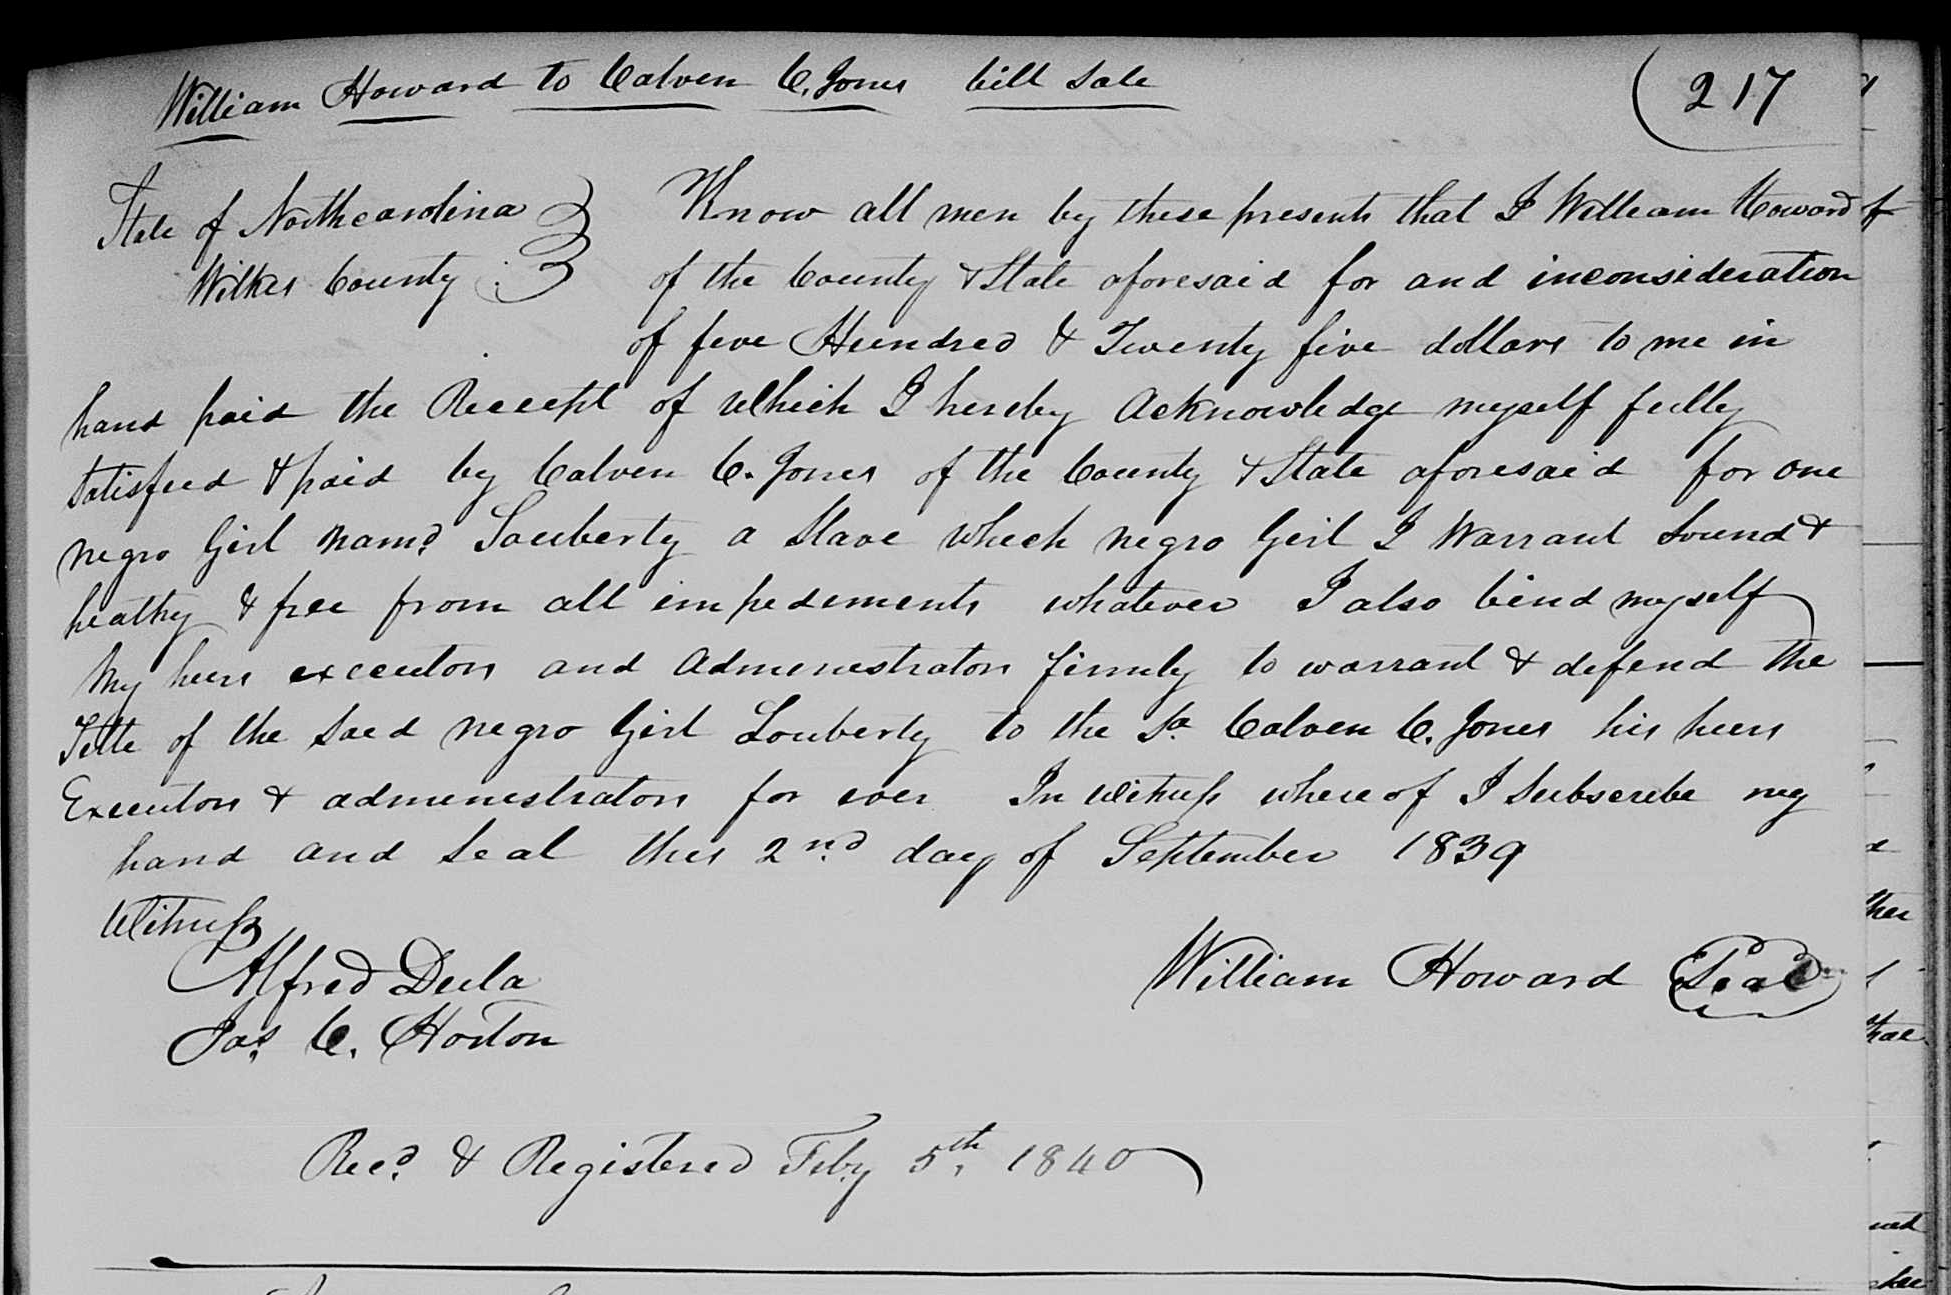 William Howard to Calven C. Jones bill Sale
(217
State of Northcarolina
Wilkes County
Know all men by these presents that I William Howard of
of the County & State aforesaid for and inconsideration
of five Hundred & Twenty five dollars to me in
hand paid the Receept of which I hereby Acknowledge myself fully
Satisfied & paid by Calven C. Jones of the County & State aforesaid for one
negro Girl namd Louberty a Slave which negro Girl I Warrant Sound &
heathy & free from all impediments whatever I also bind myself
My heirs executors and Administrators firmly to warrant & defend the
Title of the Said negro Girl Louberty to the Sd Calven C. Jones his heirs
Executors & administrators for ever In witness whereof I Subscribe my
hand and Seal this 2nd day of September 1839
Witness
Alfred Dula
Jas. C. Horton
William Howard Seal
Recd. & Registered Feby 5th, 1840